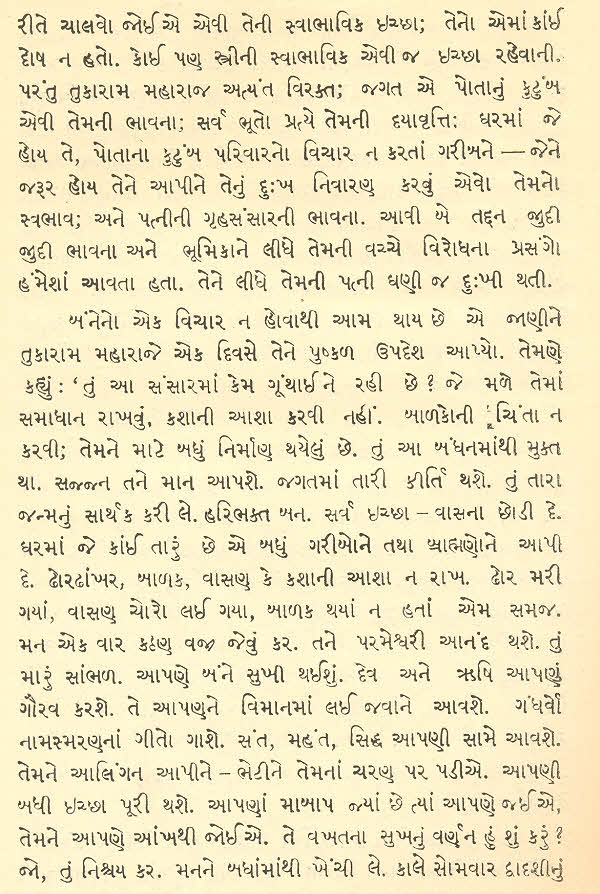 રીતે ચાલવો જોઈએ એવી તેની સ્વાભાવિક ઇચ્છા; તેનો એમાં કાંઈ
દોષ ન હતો. કોઈ પણ સ્ત્રીની સ્વાભાવિક એવી જ ઇચ્છા રહેવાની.
પરંતુ તુકારામ મહારાજ અત્યંત વિરક્ત; જગત એ પોતાનું કુટુંબ
એવી તેમની ભાવના; સર્વ ભૂતો પ્રત્યે તેમની દયાવૃત્તિ: ઘરમાં જે
હોય તે, પોતાના કુટુંબ પરિવારનો વિચાર ન કરતાં ગરીબને — જેને
જરૂર હોય તેને આપીને તેનું દુઃખ નિવારણ કરવું એવો તેમનો
સ્વભાવ; અને પત્નીની ગૃહસંસારની ભાવના. આવી બે તદ્દન જુદી
જુદી ભાવના અને ભૂમિકાને લીધે તેમની વચ્ચે વિરોધના પ્રસંગો
હંમેશાં આવતા હતા. તેને લીધે તેમની પત્ની ઘણી જ દુઃખી થતી.
બંનેનો એક વિચાર ન હોવાથી આમ થાય છે એ જાણીને
તુકારામ મહારાજે એક દિવસે તેને પુષ્કળ ઉપદેશ આપ્યો. તેમણે
કહ્યું : ‘તું આ સંસારમાં કેમ ગૂંથાઈને રહી છે? જે મળે તેમાં
સમાધાન રાખવું, કશાની આશા કરવી નહીં. બાળકોની ચિંતા ન
કરવી; તેમને માટે બધું નિર્માણ થયેલું છે. તું આ બંધનમાંથી મુક્ત
થા. સજ્જન તને માન આપશે. જગતમાં તારી કીર્તિ થશે. તું તારા
જન્મનું સાર્થક કરી લે. હરિભક્ત બન. સર્વ ઇચ્છા – વાસના છોડી દે.
ઘરમાં જે કાંઈ તારું છે એ બધું ગરીબોને તથા બ્રાહ્મણોને આપી
દે. ઢોરઢાંખર, બાળક, વાસણ કે કશાની આશા ન રાખ. ઢોર મરી
ગયાં, વાસણ ચોરો લઈ ગયા, બાળક થયાં ન હતાં એમ સમજ.
મન એક વાર કઠણ વજ્ર જેવું કર. તને પરમેશ્વરી આનંદ થશે. તું
મારું સાંભળ. આપણે બંને સુખી થઈશું. દેવ અને ઋષિ આપણું
ગૌરવ કરશે. તે આપણને વિમાનમાં લઈ જવાને આવશે. ગંધર્વો
નામસ્મરણનાં ગીતો ગાશે. સંત, મહંત, સિદ્ધ આપણી સામે આવશે.
તેમને આલિંગન આપીને – ભેટીને તેમનાં ચરણ પર પડીએ. આપણી
બધી ઇચ્છા પૂરી થશે. આપણાં માબાપ જ્યાં છે ત્યાં આપણે જઈએ,
તેમને આપણે આંખથી જોઈએ. તે વખતના સુખનું વર્ણન હું શું કરું?
જો, તું નિશ્ચય કર. મનને બધાંમાંથી ખેંચી લે. કાલે સોમવાર દ્વાદશીનું